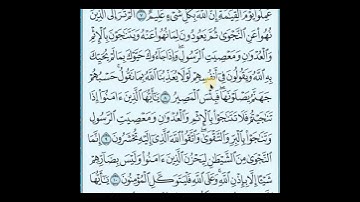 عَمِلُوا۟ يَوْمَ ٱلْقِيَـٰمَةِ إِنَّ ٱللَّهَ بِكُلِّ شَىْءٍ عَلِيمٌ ٧ أَلَمْ تَرَ إِلَى ٱلَّذِينَ
نُهُوا۟ عَنِ ٱلنَّجْوَىٰ ثُمَّ يَعُودُونَ لِمَا نُهُوا۟ عَنْهُ وَيَتَنَـٰجَوْنَ بِٱلْإِثْمِ
وَٱلْعُدْوَٰنِ وَمَعْصِيَتِ ٱلرَّسُولِ وَإِذَا جَآءُوكَ حَيَّوْكَ بِمَا لَمْ يُحَيِّكَ
بِهِ ٱللَّهُ وَيَقُولُونَ فِىٓ أَنفُسِهِمْ لَوْلَا يُعَذِّبُنَا ٱللَّهُ بِمَا نَقُولُ حَسْبُهُمْ
جَهَنَّمُ يَصْلَوْنَهَا فَبِئْسَ ٱلْمَصِيرُ ٨ يَـٰٓأَيُّهَا ٱلَّذِينَ ءَامَنُوٓا۟ إِذَا
تَنَـٰجَيْتُمْ فَلَا تَتَنَـٰجَوْا۟ بِٱلْإِثْمِ وَٱلْعُدْوَٰنِ وَمَعْصِيَتِ ٱلرَّسُولِ
وَتَنَـٰجَوْا۟ بِٱلْبِرِّ وَٱلتَّقْوَىٰ وَٱتَّقُوا۟ ٱللَّهَ ٱلَّذِىٓ إِلَيْهِ تُحْشَرُونَ ٩ إِنَّمَا
ٱلنَّجْوَىٰ مِنَ ٱلشَّيْطَـٰنِ لِيَحْزُنَ ٱلَّذِينَ ءَامَنُوا۟ وَلَيْسَ بِضَآرِّهِمْ
شَيْـًٔا إِلَّا بِإِذْنِ ٱللَّهِ وَعَلَى ٱللَّهِ فَلْيَتَوَكَّلِ ٱلْمُؤْمِنُونَ ١٠ يَـٰٓأَيُّهَا